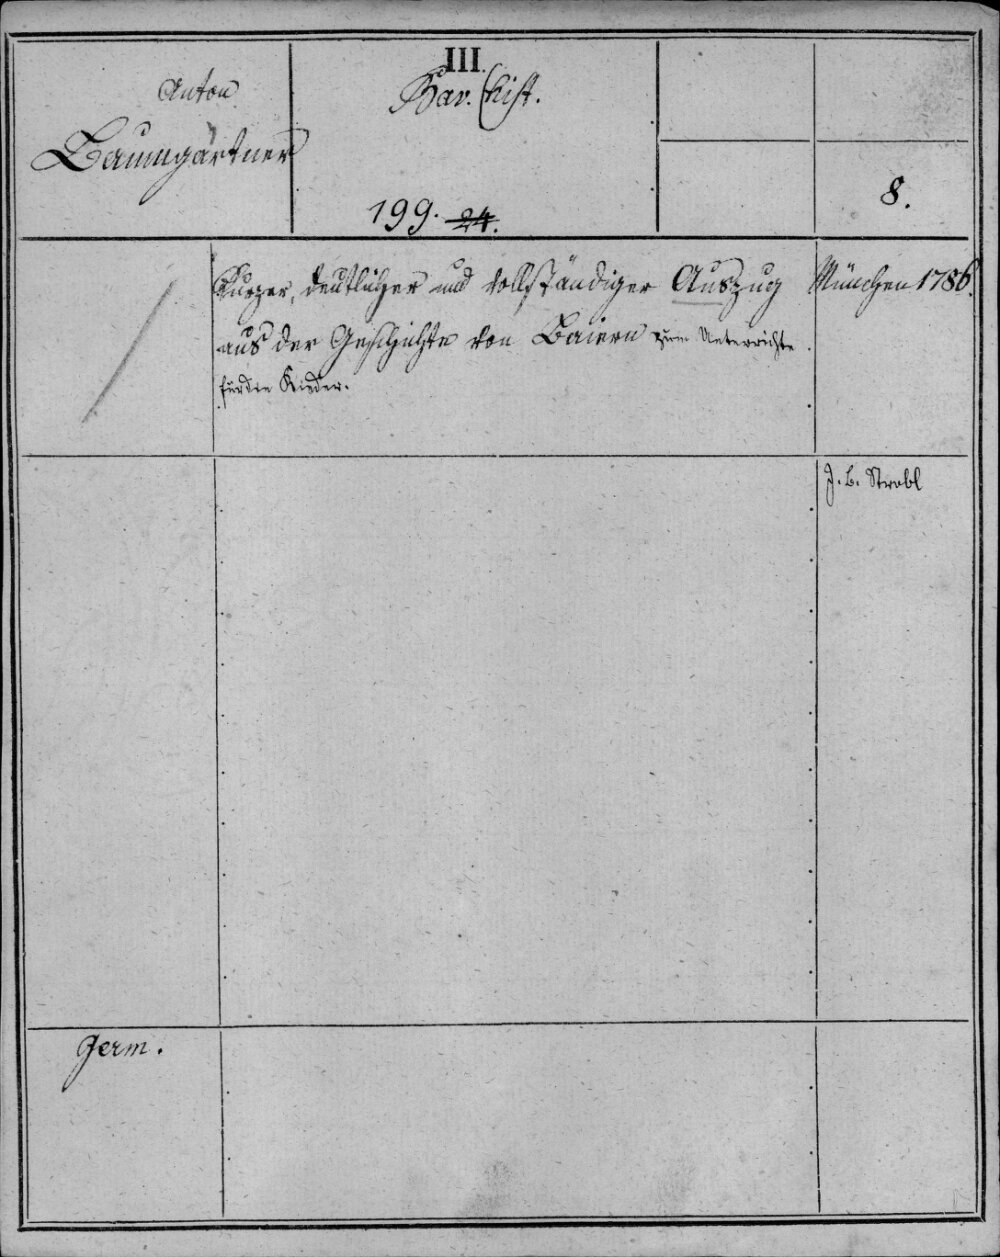 III.
Anton
Baumgärtner
Bav. Hist.
199. 24.
8.
Kurzer, deutlicher und vollständiger Auszug
aus der Geschichte von Baiern zum Unterrichte
für die Kinder.
München 1786.
J. B. Strobl
Germ.